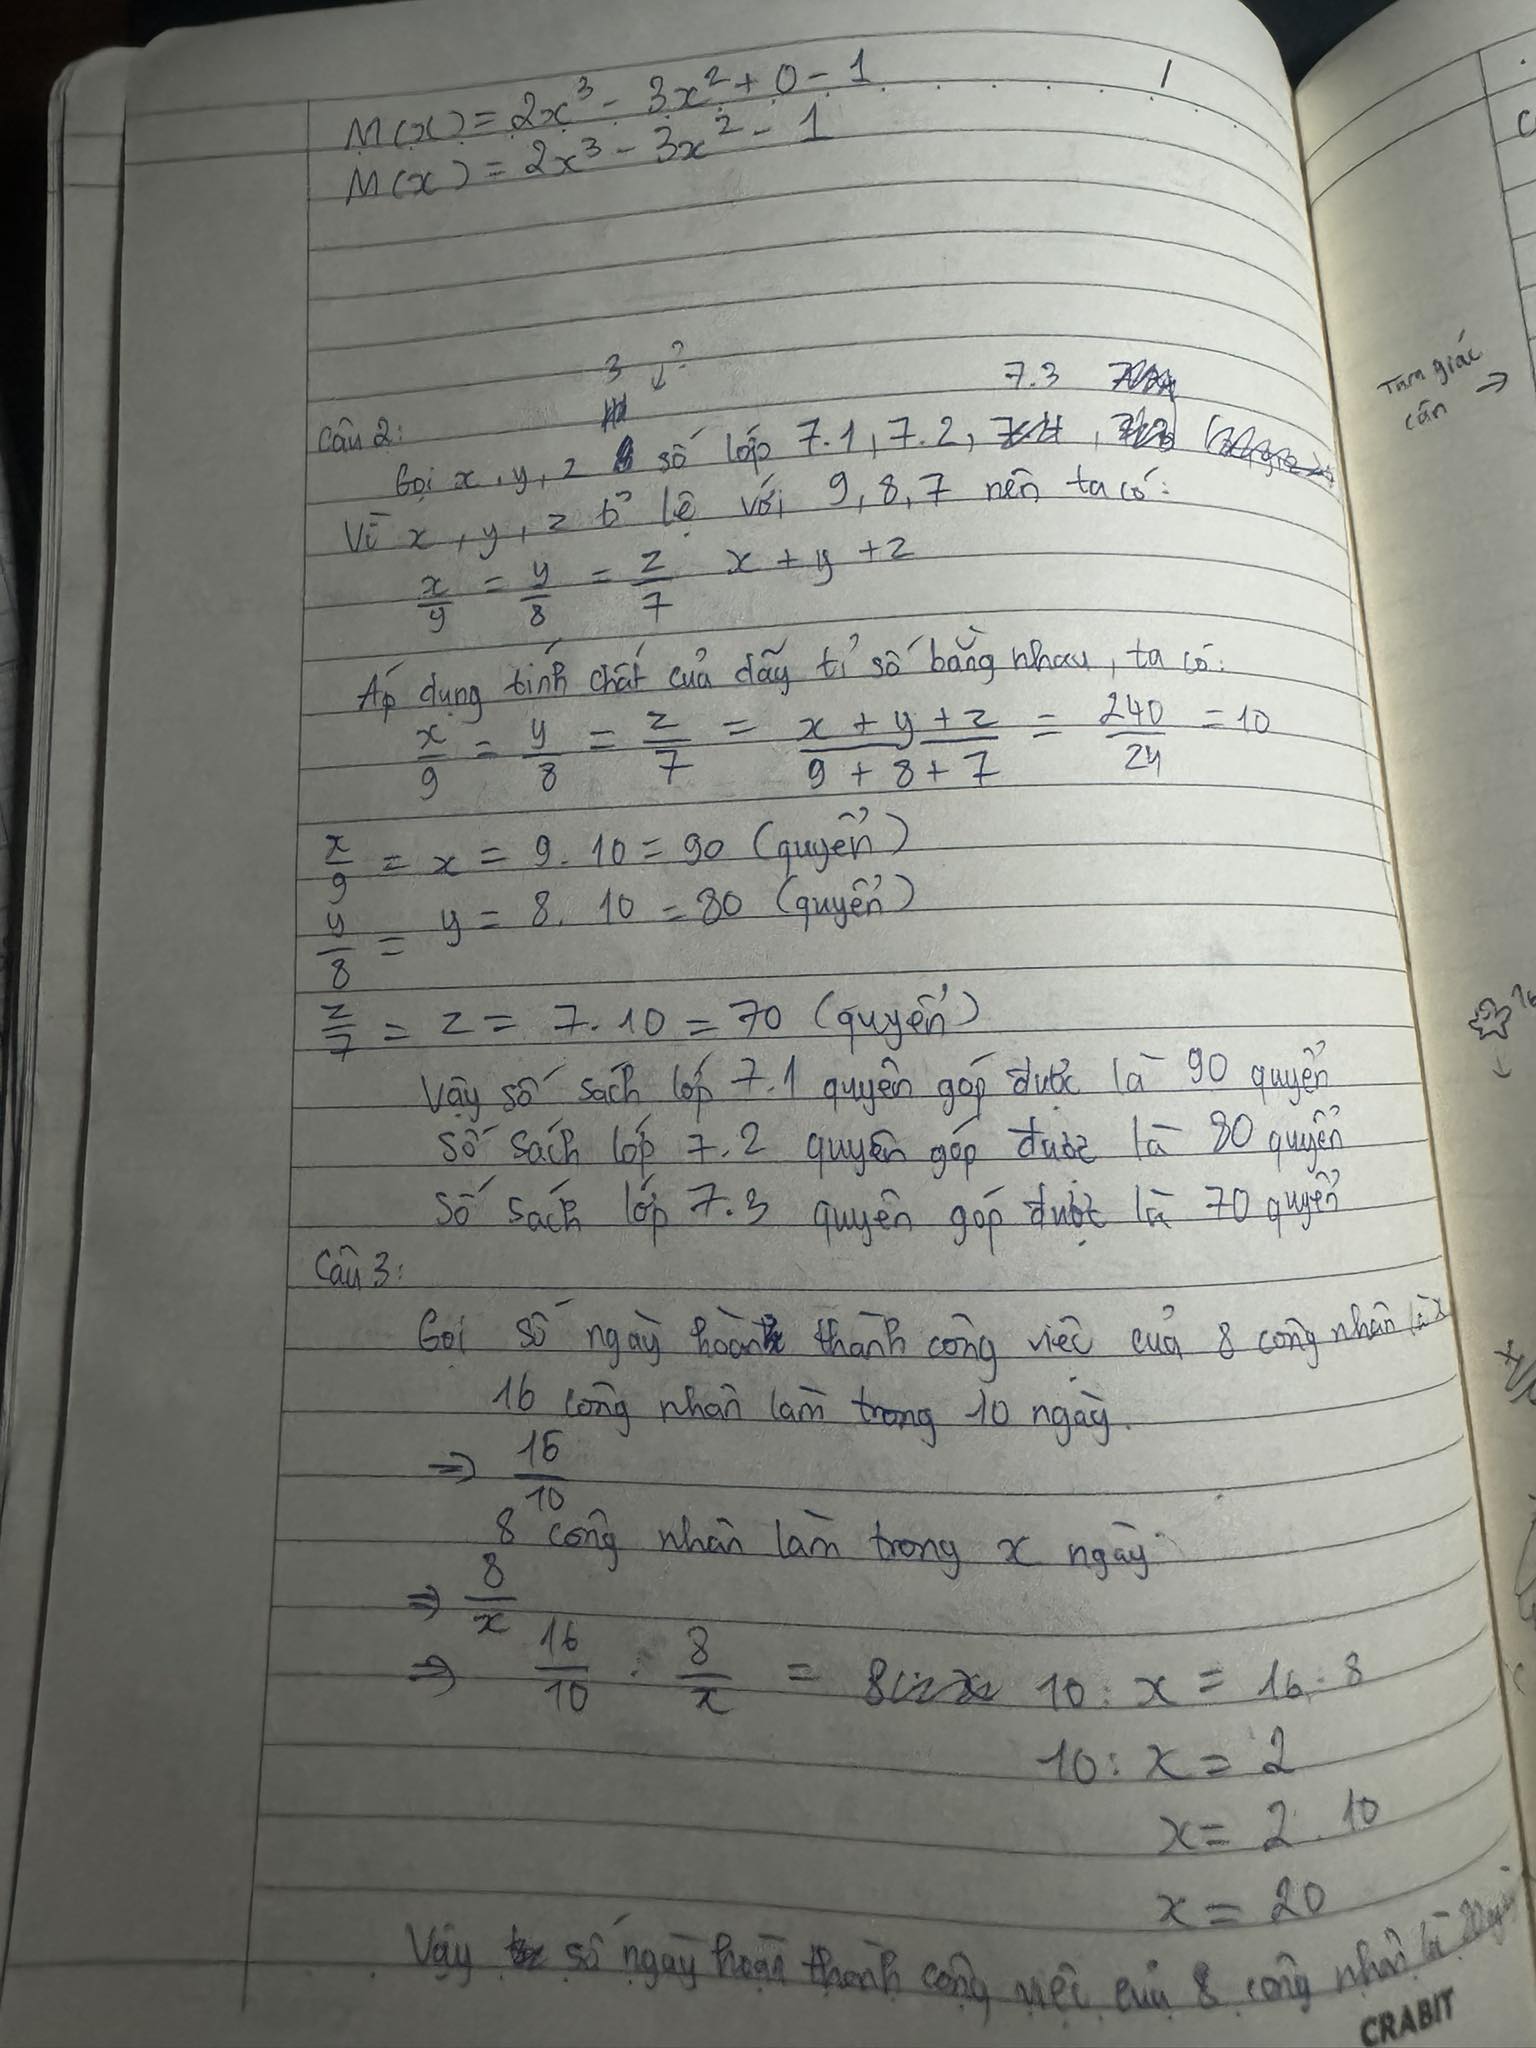 M(x) = 2x³ - 3x² + 0 - 1
M(x) = 2x³ - 3x² - 1
3 ↓?
7.3
Câu 2:
Gọi x, y, z số lớp 7.1, 7.2,
Vì x, y, z tỉ lệ với 9, 8, 7 nên ta có:
x/9 = y/8 = z/7 x + y + z
Áp dụng tính chất của dãy tỉ số bằng nhau, ta có:
x/9 = y/8 = z/7 = (x + y + z)/(9 + 8 + 7) = 240/24 = 10
x/9 = x = 9. 10 = 90 (quyển)
y/8 = y = 8. 10 = 80 (quyển)
z/7 = z = 7. 10 = 70 (quyển)
Vậy số sách lớp 7.1 quyên góp được là 90 quyển
Số sách lớp 7.2 quyên góp được là 80 quyển
Số sách lớp 7.3 quyên góp được là 70 quyển
Câu 3:
Gọi số ngày hoàn thành công việc của 8 công nhân là x
16 công nhân làm trong 10 ngày.
⇒ 16/10
8 công nhân làm trong x ngày
⇒ 8/x
⇒ 16/10 . 8/x = 10 : x = 16 : 8
10 : x = 2
x = 2 . 10
x = 20
Vậy số ngày hoàn thành công việc của 8 công nhân là 20
CRABIT
Tam giác
cân ⇒